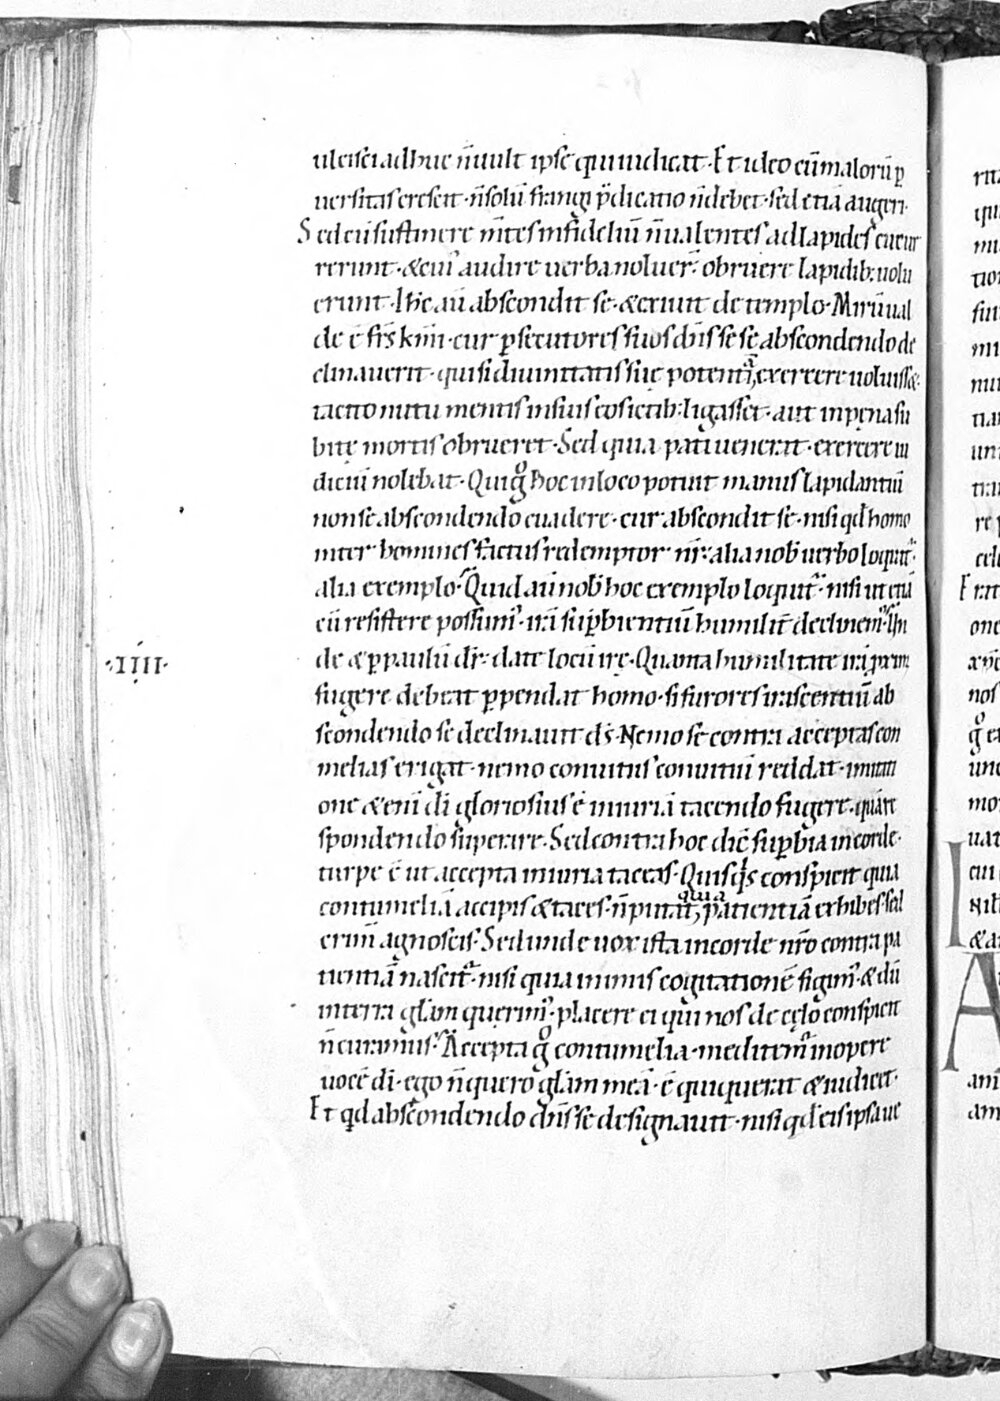 ulcisci adhuc n̄ uult ipse qui iudicat · Et ideo cū maloꝝ p̱
uersitas crescit · n̄ solū frangi p̄dicatio n̄ debet · sed etiā augeri·
Sed eū sustinere m̄tes infideliū n̄ ualentes ad lapides cucur
rerunt · & cui᾽ audire uerba noluer̄ · obruere lapidib: uolu
erunt · Ihc̄ aū abscondit se · & exiuit de templo · Mirū ual
de ē fr̄s km̄i · cur p̱secutores suos dn̄s se se abscondendo de
clinauerit · qui si diuinitatis suę potentiā exercere uoluiss&·
tacito nutu mentis in suis eos ictib: ligasset · aut in pęna su
bitę mortis obrueret · Sed quia pati uenerat · exercere iu
diciū nolebat · Qui gͦ hoc in loco potuit manus lapidantiū
non se abscondendo euadere · cur abscondit se · nisi qd̄ homo
inter homines factus redemptor nr̄ · alia nob̄ uerbo loquit᾽·
alia exemplo · Quid aū nob̄ hoc exemplo loquit᾽ · nisi ut etiā
cū resistere possum᾽ · irā sup̱bientiū humilit̄ declinem᾽·
de & p̱ paulū dr̄ · date locū irę · Quanta humilitate irā proximi
fugere debeat p̱pendat homo · si furores irascentiū ab
scondendo se declinauit ds̄ · Nemo se contra acceptas con
melias erigat · nemo conuitiis conuitiū reddat · imitati
one & enī dī gloriosius ē iniuriā tacendo fugere · quā re
spondendo superare · Sed contra hoc dic̄ sup̱bia in corde·
turpe ē ut accepta iniuria taceas · Quisqͥs conspicit quia
contumeliā accipis & taces · n̄ putat quia patientiā exhibes sed
crim̄ agnoscis · Sed unde uox ista in corde nr̄o contra pa
tientiā nascit᾽ · nisi quia in imis cogitationē figim᾽ · & dū
in terra glām querim᾽ · placere ei qui nos de cęlo conspicit
n̄ curamus · Accepta gͦ contumelia · meditem᾽ in opere
uocē dī · ego n̄ quero glām meā · ē qui querat & iudicet·
Et qd̄ abscondendo dn̄s se designauit · nisi qd̄ eis ipsa ue
·IIII·